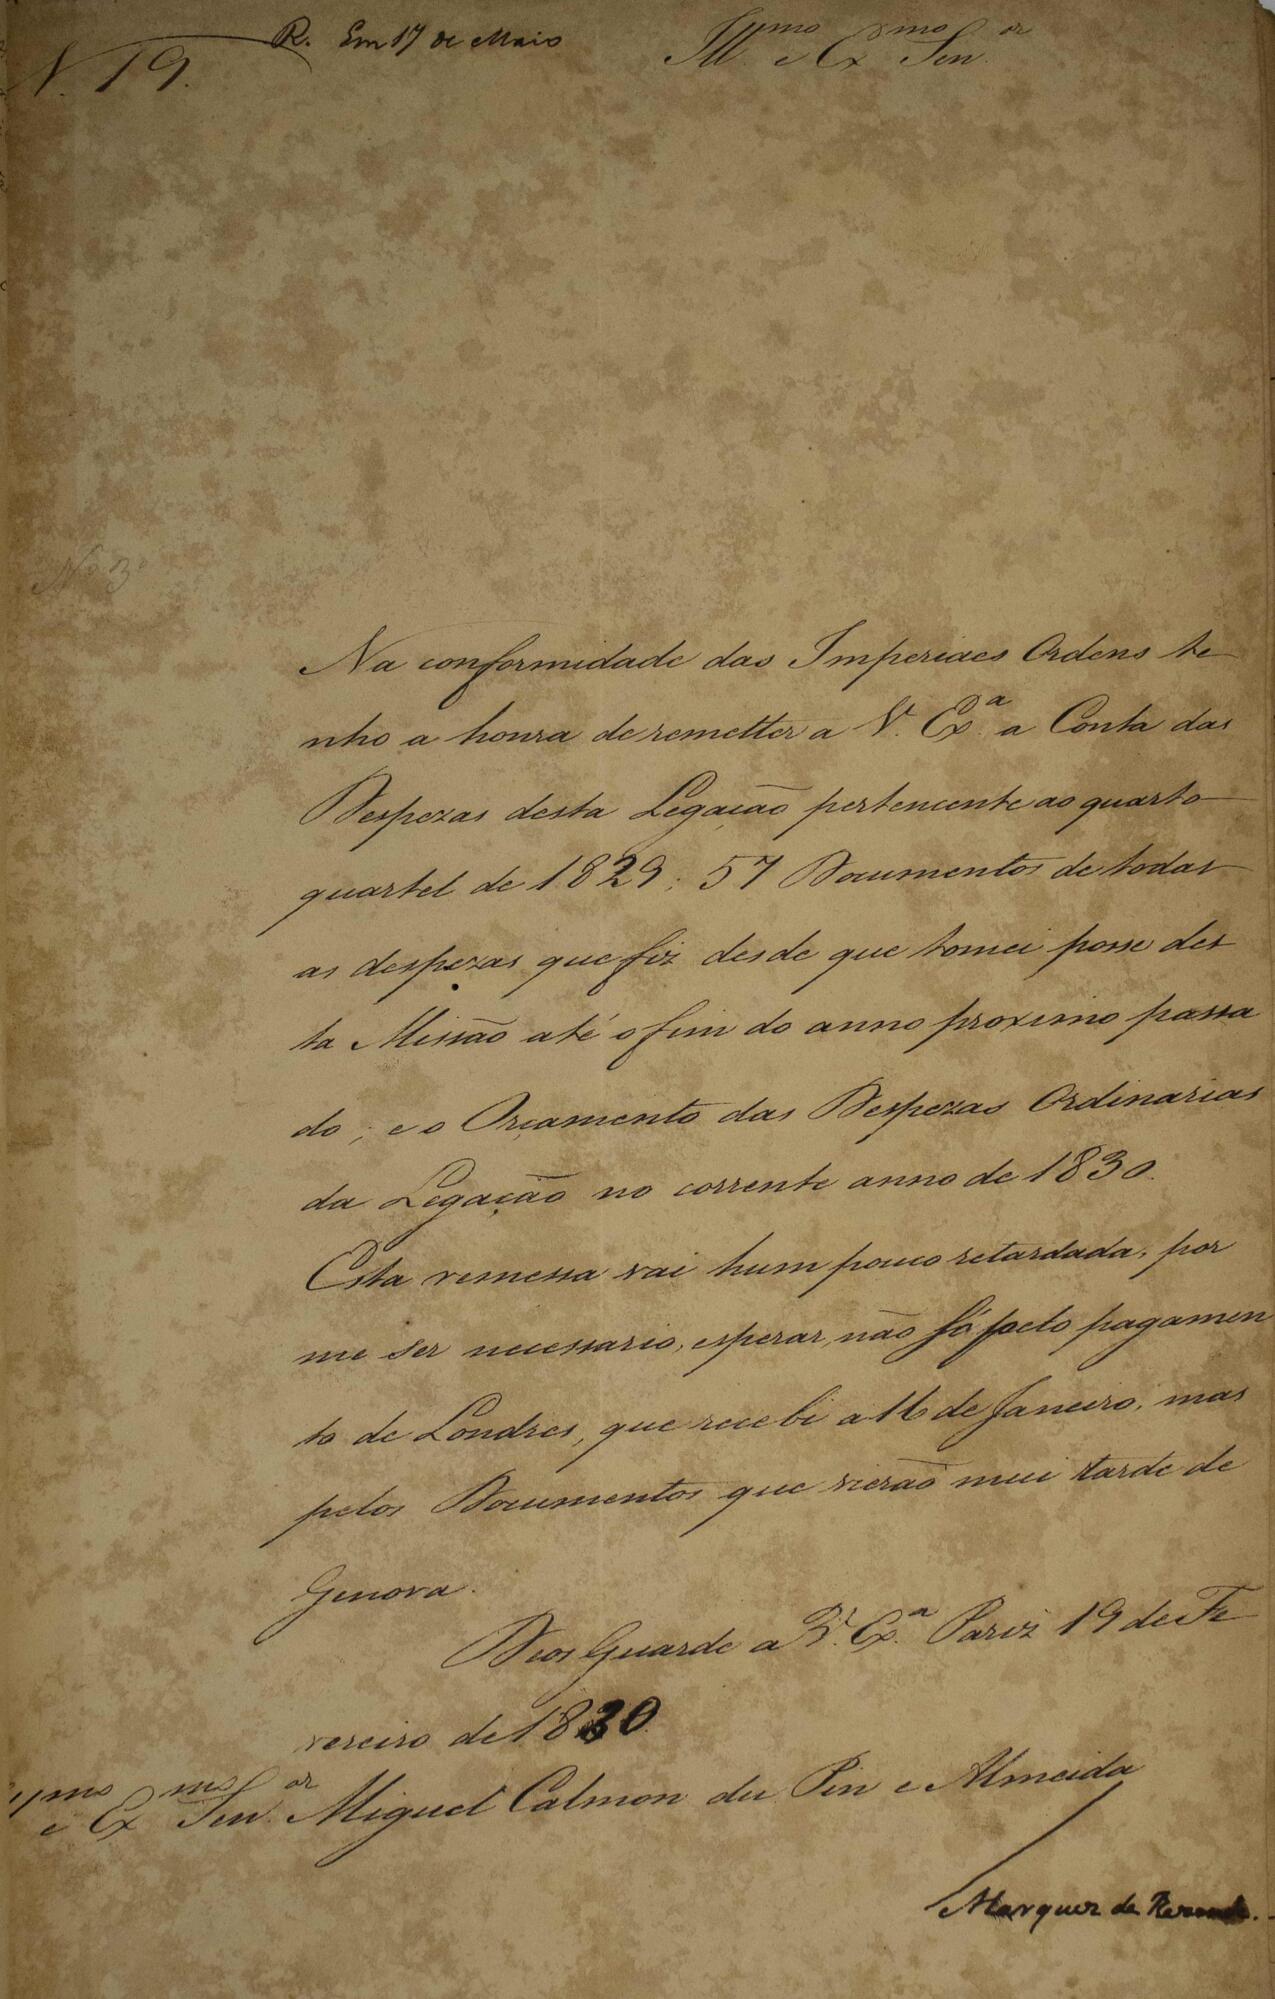 N. 19.
R. Em 17 de Maio
Ill.mo e Ex.mo Sen.or
No. 3o
Na conformidade das Imperiaes Ordens te
nho a honra de remetter a V. Ex.a a Conta das
Despezas desta Legação pertencente ao quarto
quartel de 1829; 57 Documentos de todas
as despezas que fiz desde que tomei posse des
ta Missão até o fim do anno proximo passa
do; e o Orçamento das Despezas Ordinarias
da Legação no corrente anno de 1830.
Esta remessa vai hum pouco retardada, por
me ser necessario, esperar, não só pelo pagamen
to de Londres, que recebi a 16 de Janeiro, mas
pelos Documentos que vierão mui tarde de
Genova.
Deos Guarde a V. Ex.a Pariz 19 de Fe
vereiro de 1830.
Ill.mo e Ex.mo Sen.or Miguel Calmon du Pin e Almeida
Marquez de Rezende.